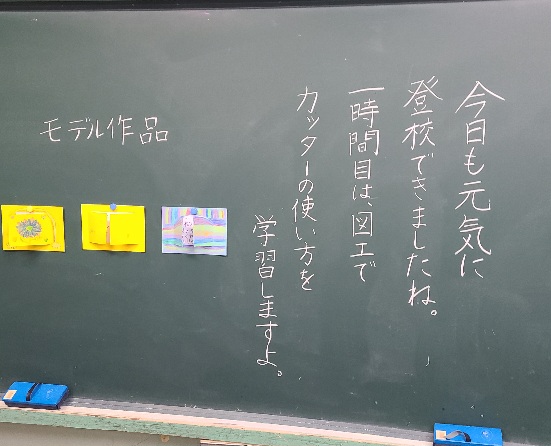 今日も元気に
登校できましたね。
一時間目は、図工で
カッターの使い方を
学習しますよ。
モデル作品